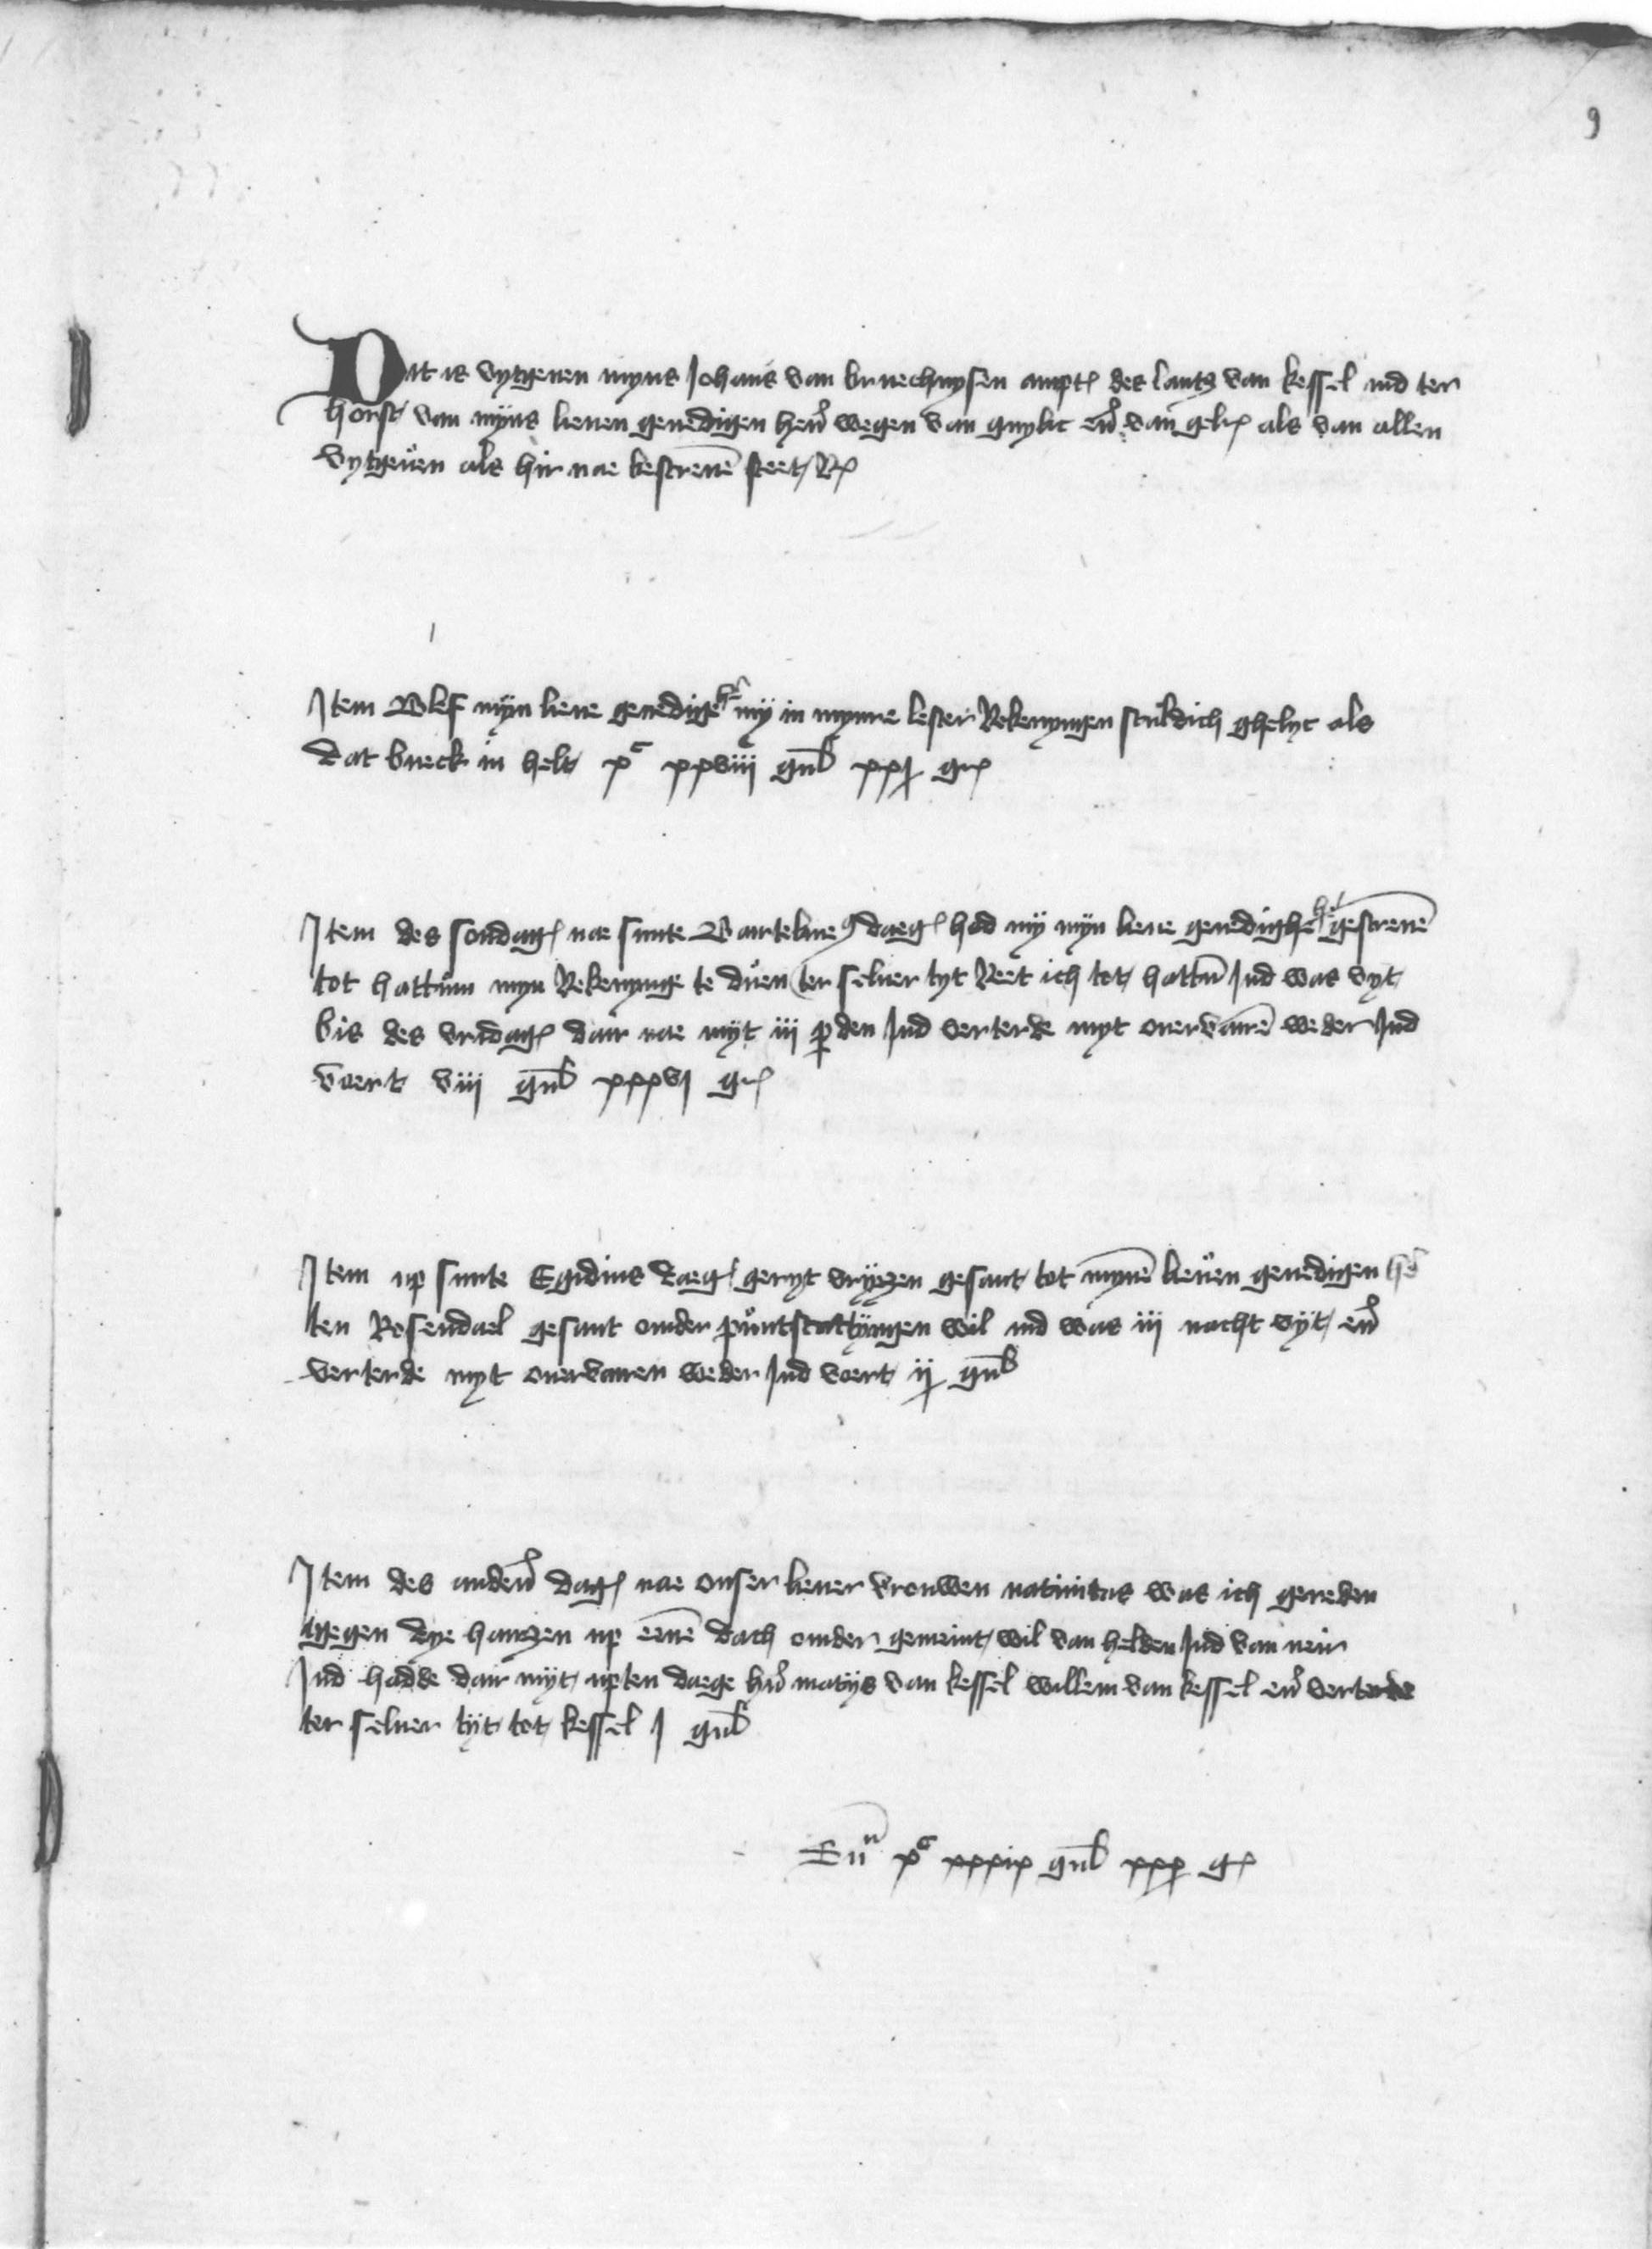 9
Dit is vytgeven myns Johans van bruechuysen ampt des lants van kessel ind ter
horst van myns lieven genedigen hern wegen van guylic end van gelr als van allen
vytgeven als hir nae bescreven steet Rc
Item blef myn lieve genedige her my in mynre lester Rekenyngen sculdich ghelyc als
dat bueck in helt jc xxviij guld xxj gr
Item des sondags nae sunte Bartelmeus daeg had my myn lieve genedighe her gescreven
tot hattum myn Rekenynge te duen ter selver tyt Reet ich tot hattum Ind was vyt
bis des vridags dair nae myt iij perden Ind verterde myt overvaren weder Ind
voert viij guld xxxvj gr
Item up sunte Egidius daeg geryt vryezen gesant tot mynen lieven genedigen her
ten Rosendael gesant omder puntscattyngen wil ind was iij nacht vyt end
verterde myt overvaren weder Ind voert ij guld
Item des anderen dags nae onser liever vrouwen nativitas was ich gereden
tgegen dye hanzen up eenen dach omder gemeint wil van helden Ind van neir
Ind hadde dair myt upten daege her matijs van kessel willem van kessel end verterde
ter selver tyt tot kessel j guld
Sum jc xxxix guld xxj gr